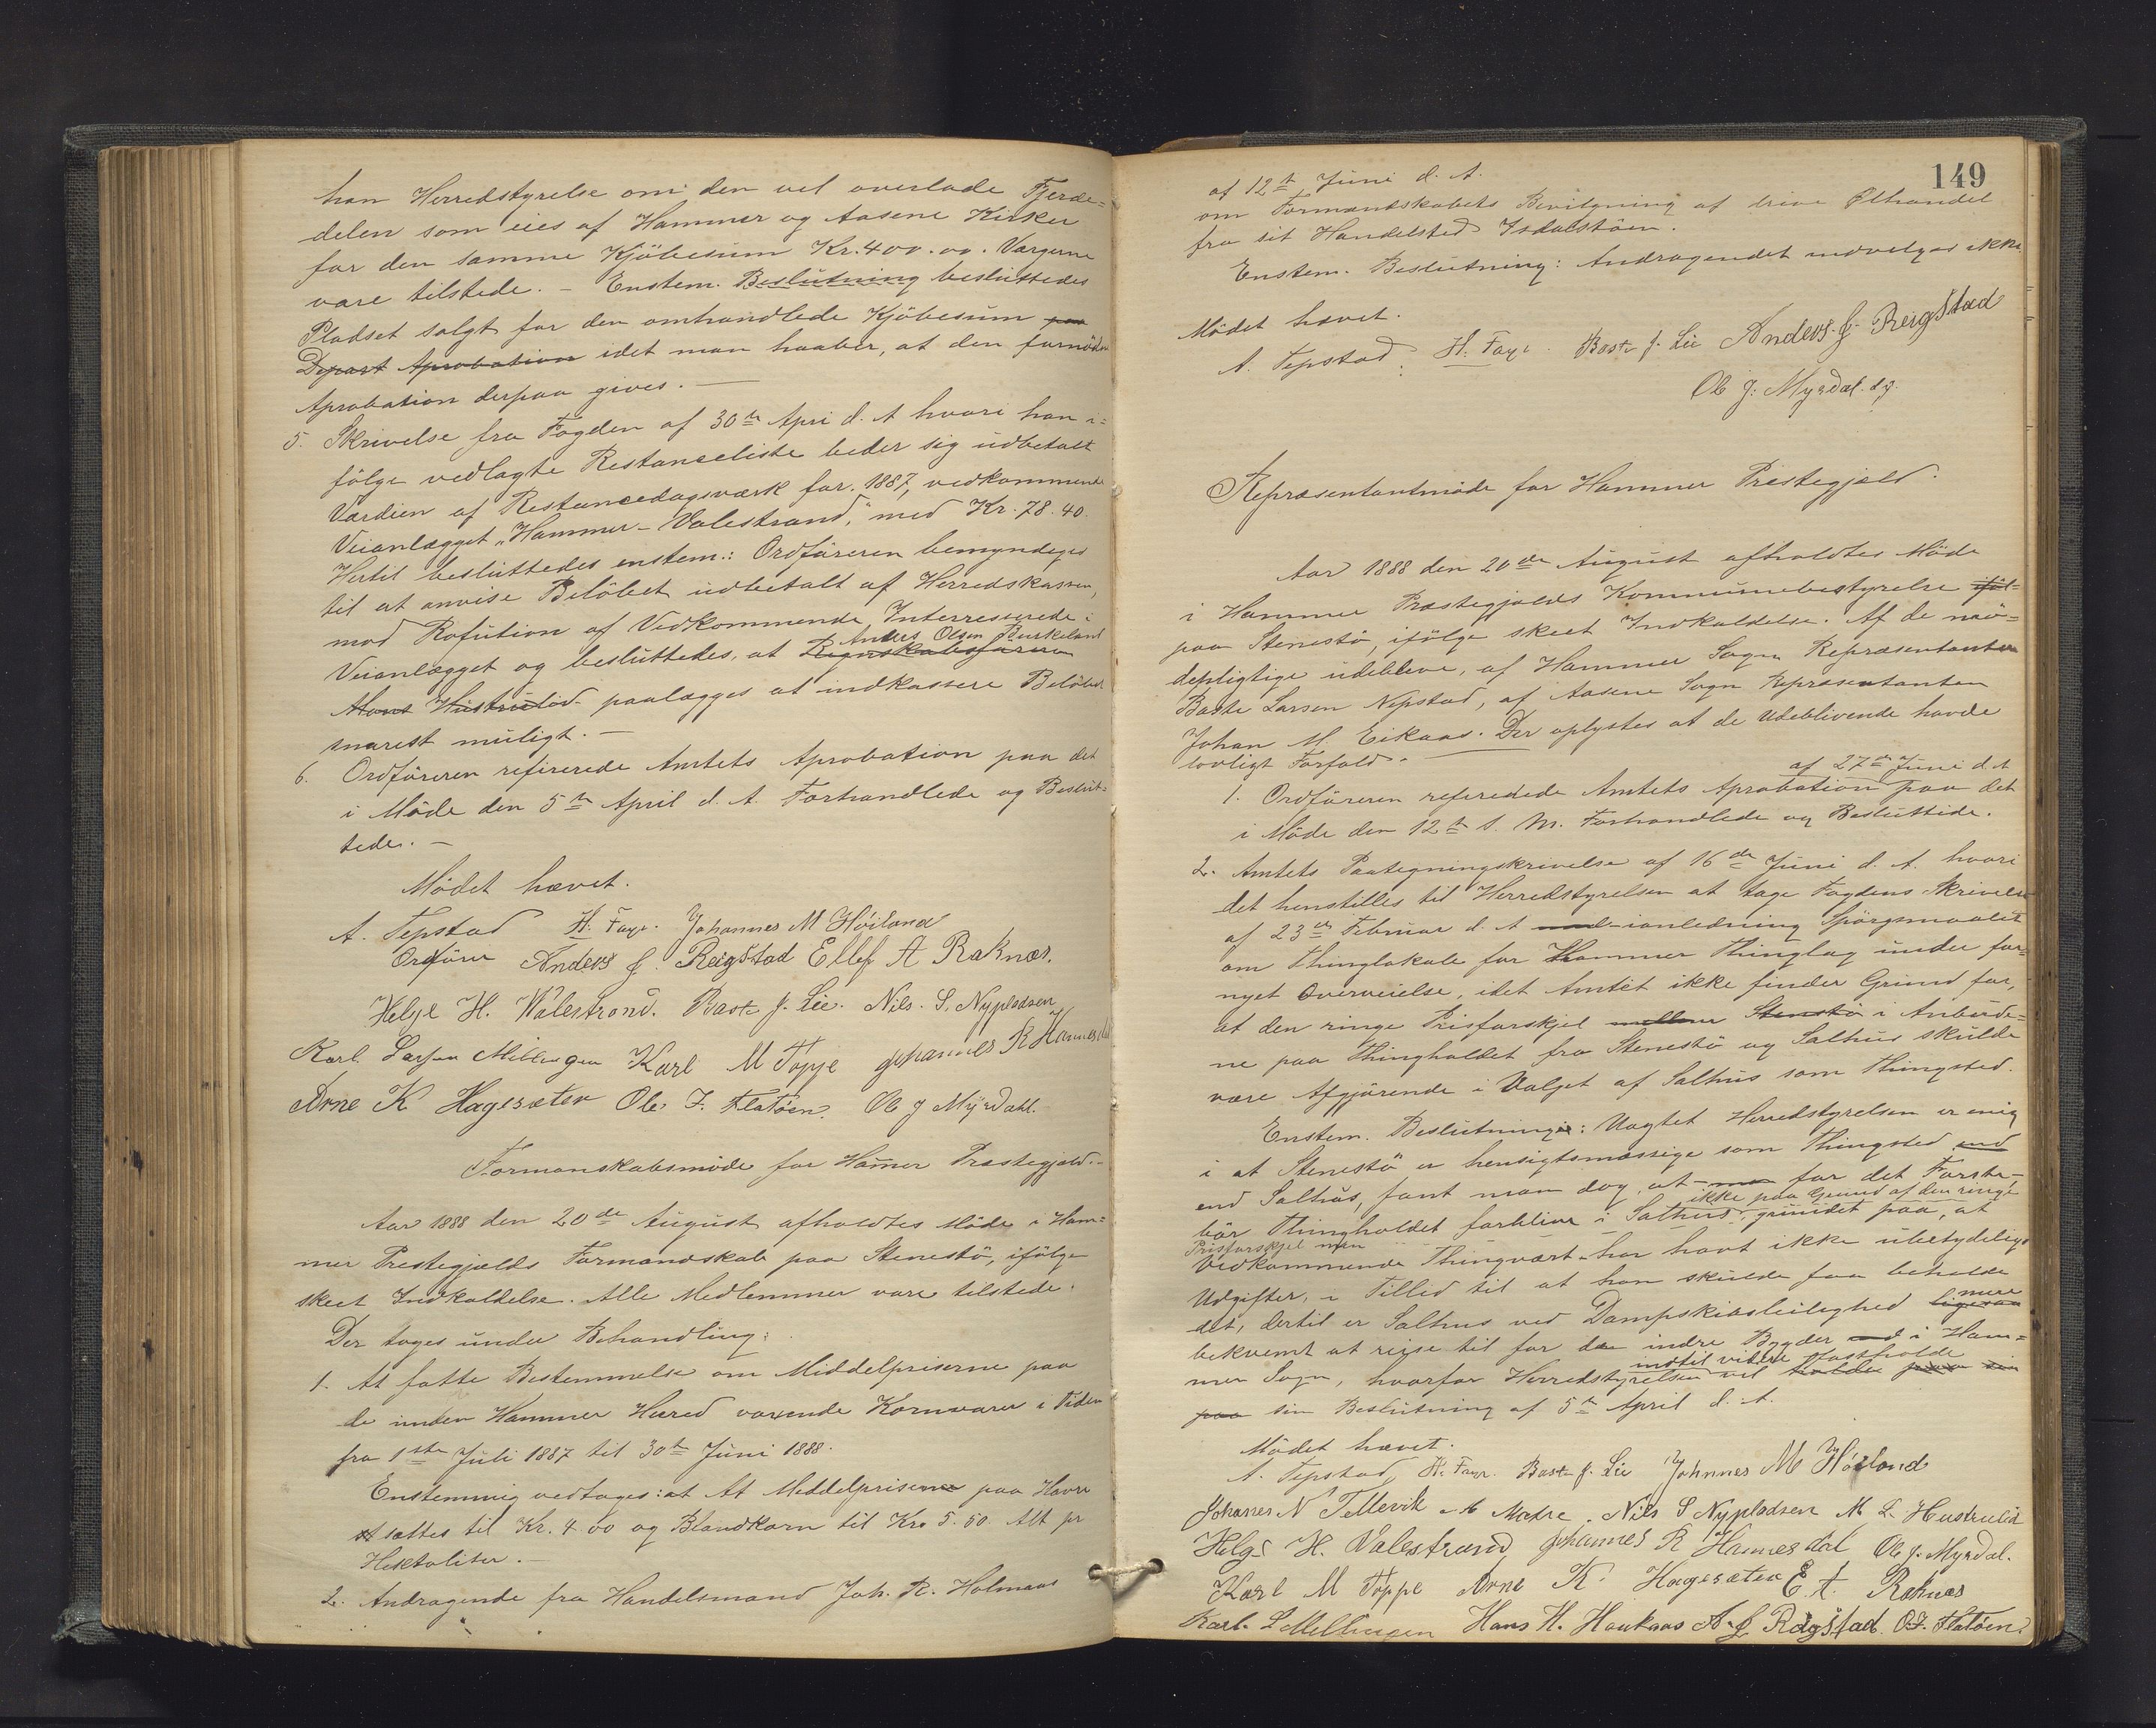 han Herredstyrelse om den vil overlade Fjerde=
delen som eies af Hammer og Aasene Kirker
for den samme Kjöbesum Kr. 400.00. Værgerne
vare tilstede. – Enstem. Beslutning besluttedes
Pladset solgt for den omhandlede Kjöbesum paa
Depart Aprobation idet man haaber, at den fornödne
Aprobation derpaa gives. —
5. Skrivelse fra Fogden af 30te Apri d. A hvori han i=
følge vedlagte Restanceliste beder sig udbetalt
Værdien af Restancedagsværk for 1887, vedkommende
Veianlægget „Hammer – Valestrand," med Kr. 78.40.
Hertil besluttedes enstem.: Ordføreren bemyndiges
til at anvise Belöbet udbetalt af Herredskassen,
mod Refution af Vedkommende Interresserede i
Anders Olsen Burkeland
Veianlægget og besluttedes, at Regnskabsföreren
Mons Hustrulid paalægges at indkassere Belöbet
snarest muligt. —
6. Ordföreren refirerede Amtets Aprobation paa det
i Möde den 5te April d. A. Forhandlede og Beslut=
tede. —
Mödet hævet.
A. Tepstad H. Faye. Johannes M Höiland
Ordförer Anders J. Reigstad Ellef A Raknæs.
Helge H. Valestrand. Baste J. Lie. Nils. S. Nypladsen
Karl Larsen Mellingen Karl M Toppe Johannes R Hannesdal
Arne K Hagesæter Ole J. Flatöen. Ole J Myrdahl.
Formanskabsmöde for Hamer Præstegjæld. –
Aar 1888 den 20de August afholdtes Möde i Ham=
mer Prestegjælds Formandskab paa Stenestö, ifölge
skeet Indkaldelse. Alle Medlemmer vare tilstede.
Der toges under Behandling:
1. At fatte Bestemmelse om Middelpriserne paa
de inden Hammer Herred voxende Kornvarer i Tiden
fra 1ste Juli 1887 til 30te Juni 1888.
Enstemmig vedtages: at At Middelpriserne paa Havre
At sættes til Kr. 4.00 og Blandkorn til Kr. 5.50. Alt pr
Hektoliter. —
2. Andragende fra Handelsmand Joh. R. Holmaas
149
af 12te Juni d. A.
om Formandskabets Bevilgning af drive Ølhandel
fra sit Handelsted Isdalstöen.
Enstem. Beslutning: Andragendet indvilges ikke.
Mödet hævet.
A. Tepstad. H. Faye. Baste J. Lie Anders J. Reigstad
Ole J. Myrdal.
Repræsentantmöde for Hammer Præstegjæld.
Aar 1888 den 20de August afholdtes Möde
i Hammer Præstegjælds Kommunebestyrelse iföl=
paa Stenestö, ifölge skeet Indkaldelse. Af de mö=
depligtige udebleve, af Hammer Sogn Repræsentanten
Baste Larsen Nepstad, af Aasene Sogn Repræsentanten
Johan M Eikaas. Der oplystes at de Udeblivende havde
lovligt Forfald. —
af 27de Juni d. A
1. Ordföreren referedede Amtets Aprobation paa det
i Möde den 12te s. M. Forhandlede og Besluttede.
2. Amtets Paategningskrivelse af 16de Juni d. A. hvori
det henstilles til Herredstyrelsen at tage Fogdens Skrivelse
af 23de Februar d. A ianledning Spörgsmaalet
om Thinglokale for Hammer Thinglag under for=
nyet Overveielse, idet Amtet ikke finder Grund for,
at den ringe Prisforskjel mellem Stenestö i Anbude=
ne paa Thingholdet fra Stenestö og Salhus skulde
være Afgjörende i Valget af Salhus som Thingsted.
Enstem. Beslutning: Uagtet Herredstyrelsen er enig
i at Stenestö er hensigtsmæssige som Thingsted end
end Salhus, fant man dog, at man for det Förste
ikke paa Grund af den ringe
bör Thingholdet forblive i Salhus, grundet paa, at
Prisforskjel men
Vedkommende Thingvært har havt ikke ubetydelige
Udgifter, i Tillid til at han skulde faa beholde
mere
det, dertil er Salhus ved Dampskibsleilighed ligesaa
bekvemt at reise til for de indre Bygder i Ham=
indtil videre fastholde
mer Sogn, hvorfor Herredstyrelsen vil holde paa sin
paa sin Beslutning af 5te April d. A.
Mödet hævet.
A. Tepstad, H. Faye. Baste J. Lie Johnnes M Höiland
Johanes N Tellevik M Matre. Nils S Nypladsen M L. Hustrulid
Helge H. Valestrand Johannes R Hannesdal Ole J. Myrdal.
Karl M Toppe Arne K. Hagesæter E. A. Raknæs
Karl L Mellingen Hans H. Haukaas A. J. Reigstad. O. J. Flatöen.